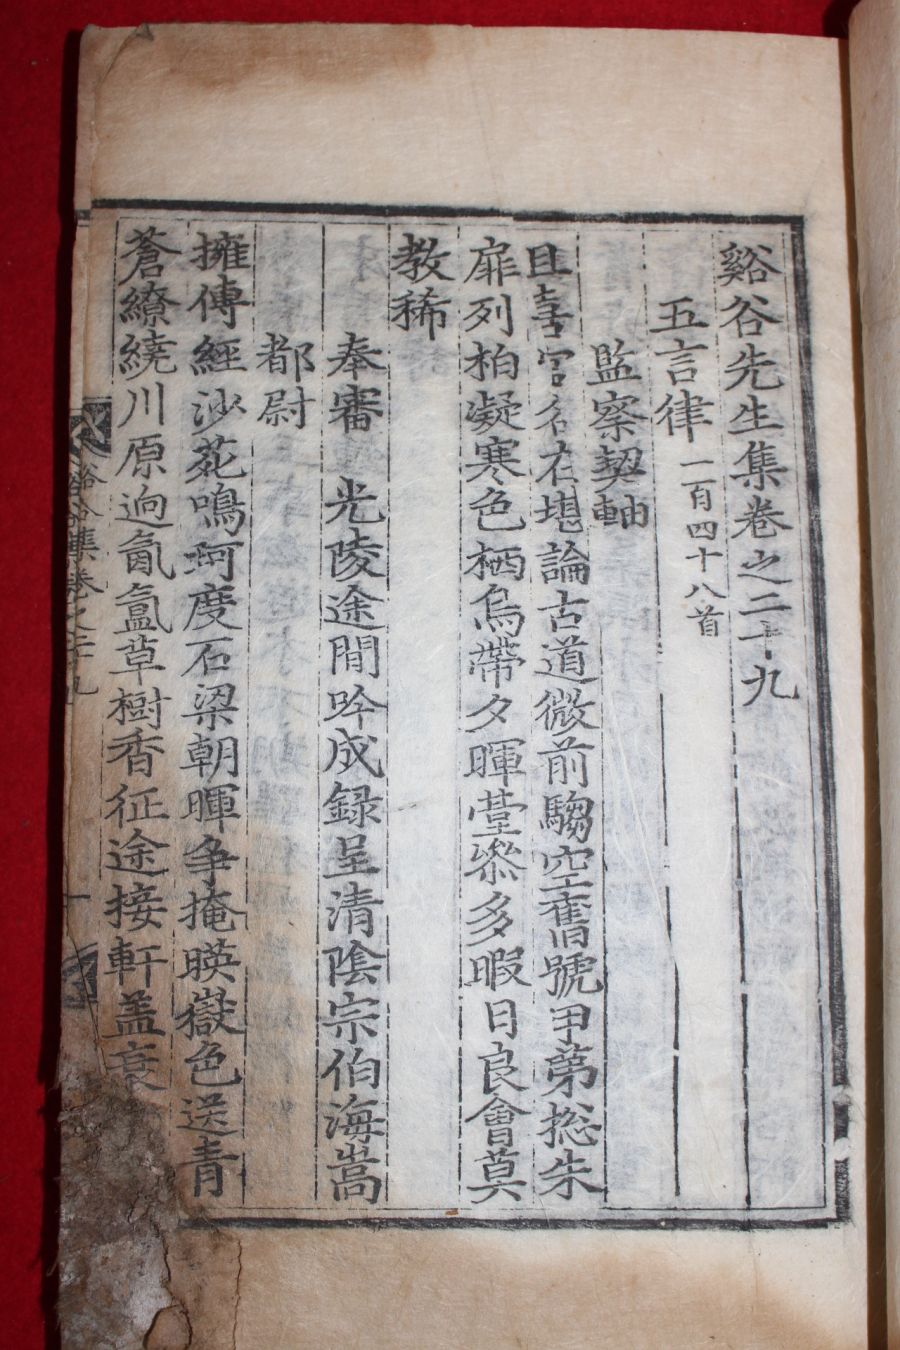 谿谷先生集卷之二十九
五言律 一百四十八首
監察契軸
且喜官名在堪論古道微前騶空舊號甲第捴朱
扉列柏凝寒色栖烏帶夕暉薹叅多暇日良會莫
教稀
奉審 光陵途間吟成録呈清陰宗伯海嵩
都尉
擁傳經沙苑鳴珂度石梁朝暉争掩暎嶽色送青
蒼繚繞川原逈氤氳草樹香征途接軒盖衰
谿谷集卷之二十九